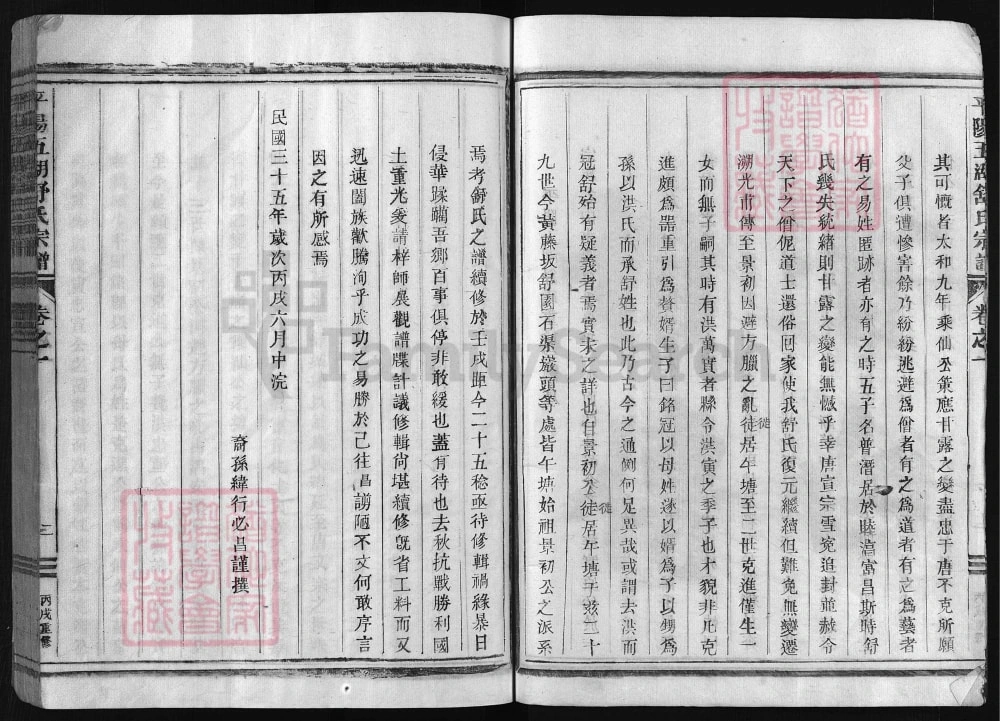 其可慨者太和九年乘仙公策應甘露之變盡忠于唐不克所願
父子俱遭慘害餘乃紛紛逃避為僧者有之為道者有之為藝者
有之易姓匿跡者亦有之時五子名普潛居於睦富昌斯時舒
氏幾失統緒則甘露之變能無憾乎幸唐宣宗雪冤追封並赦令
天下之僧伲道士還俗回家使我舒氏復元繼續但難免無變遷
溯光甫傳至景初因避方臘之亂徒居午塘至二世克進僅生一
徙
女而無子嗣其時有洪萬實者縣令洪寅之季子也才貌非凡克
進頗為器重引為贅婿生子曰銘冠以母姓遂以婿為子以甥為
孫以洪氏而承舒姓也此乃古今之通例何足異哉或謂去洪而
冠舒殆有疑義者焉實未之詳也自景初公徒居午塘于茲三十
徙
九世今黃藤坂舒園石渠巖頭等處皆午塘始祖景初公之派系
平陽五湖舒氏宗譜
卷之一
焉考舒氏之譜續修於壬戌距今二十五稔亟待修輯禍緣暴日
侵華蹂躪吾鄉百事俱停非敢緩也蓋有待也去秋抗戰勝利國
土重光爰請梓師展觀譜牒計議修輯尚堪續修既省工料而又
迅速闔族歡騰洵乎成功之易勝於已往昌譾陋不文何敢序言
因之有所感焉
民國三十五年歲次丙戌六月中浣
裔孫緯行必昌謹撰
平陽五湖舒氏宗譜
卷之一
三
丙戌重修
FamilySearch